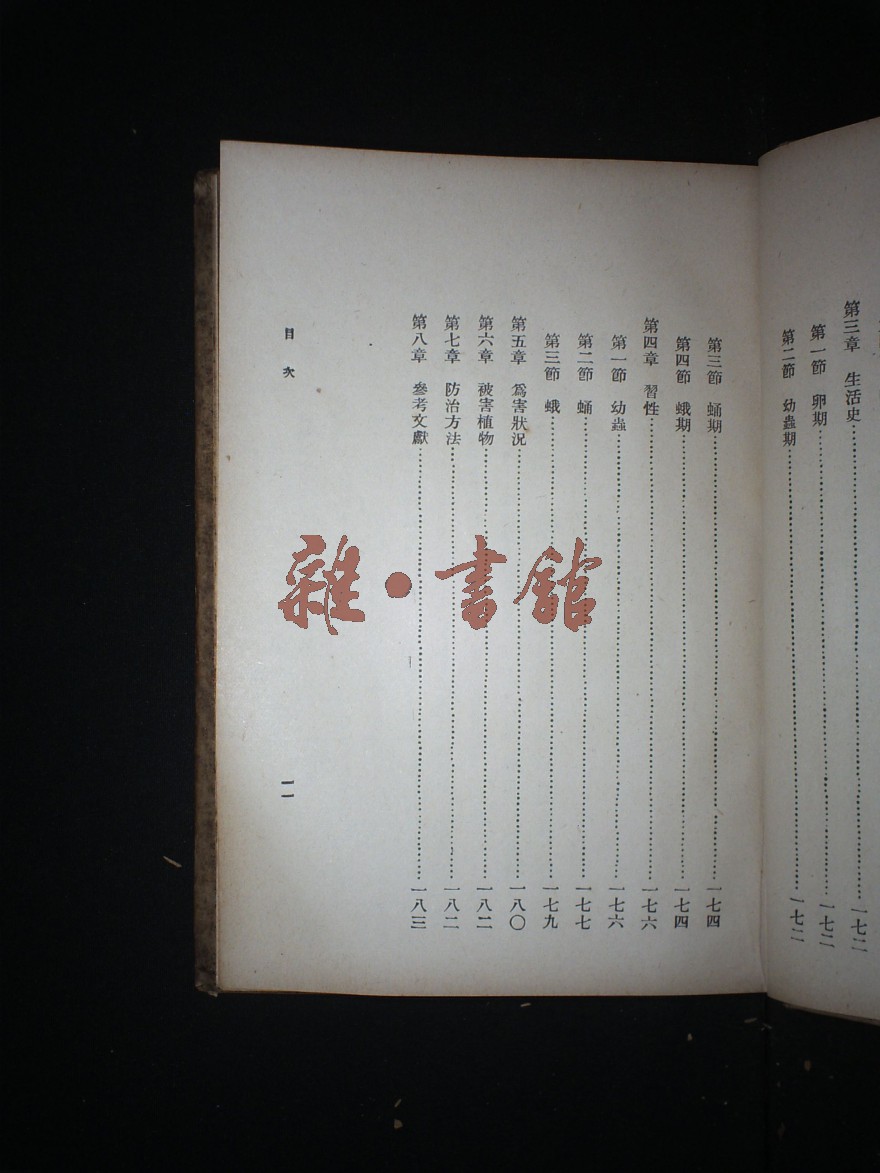 第三章　生活史…………一七二
第一節　卵期…………一七二
第二節　幼蟲期…………一七二
第三節　蛹期…………一七四
第四節　蛾期…………一七四
第四章　習性…………一七六
第一節　幼蟲…………一七六
第二節　蛹…………一七七
第三節　蛾…………一七九
第五章　爲害狀況…………一八〇
第六章　被害植物…………一八二
第七章　防治方法…………一八二
第八章　參考文獻…………一八三
目次　一一
雜·書館